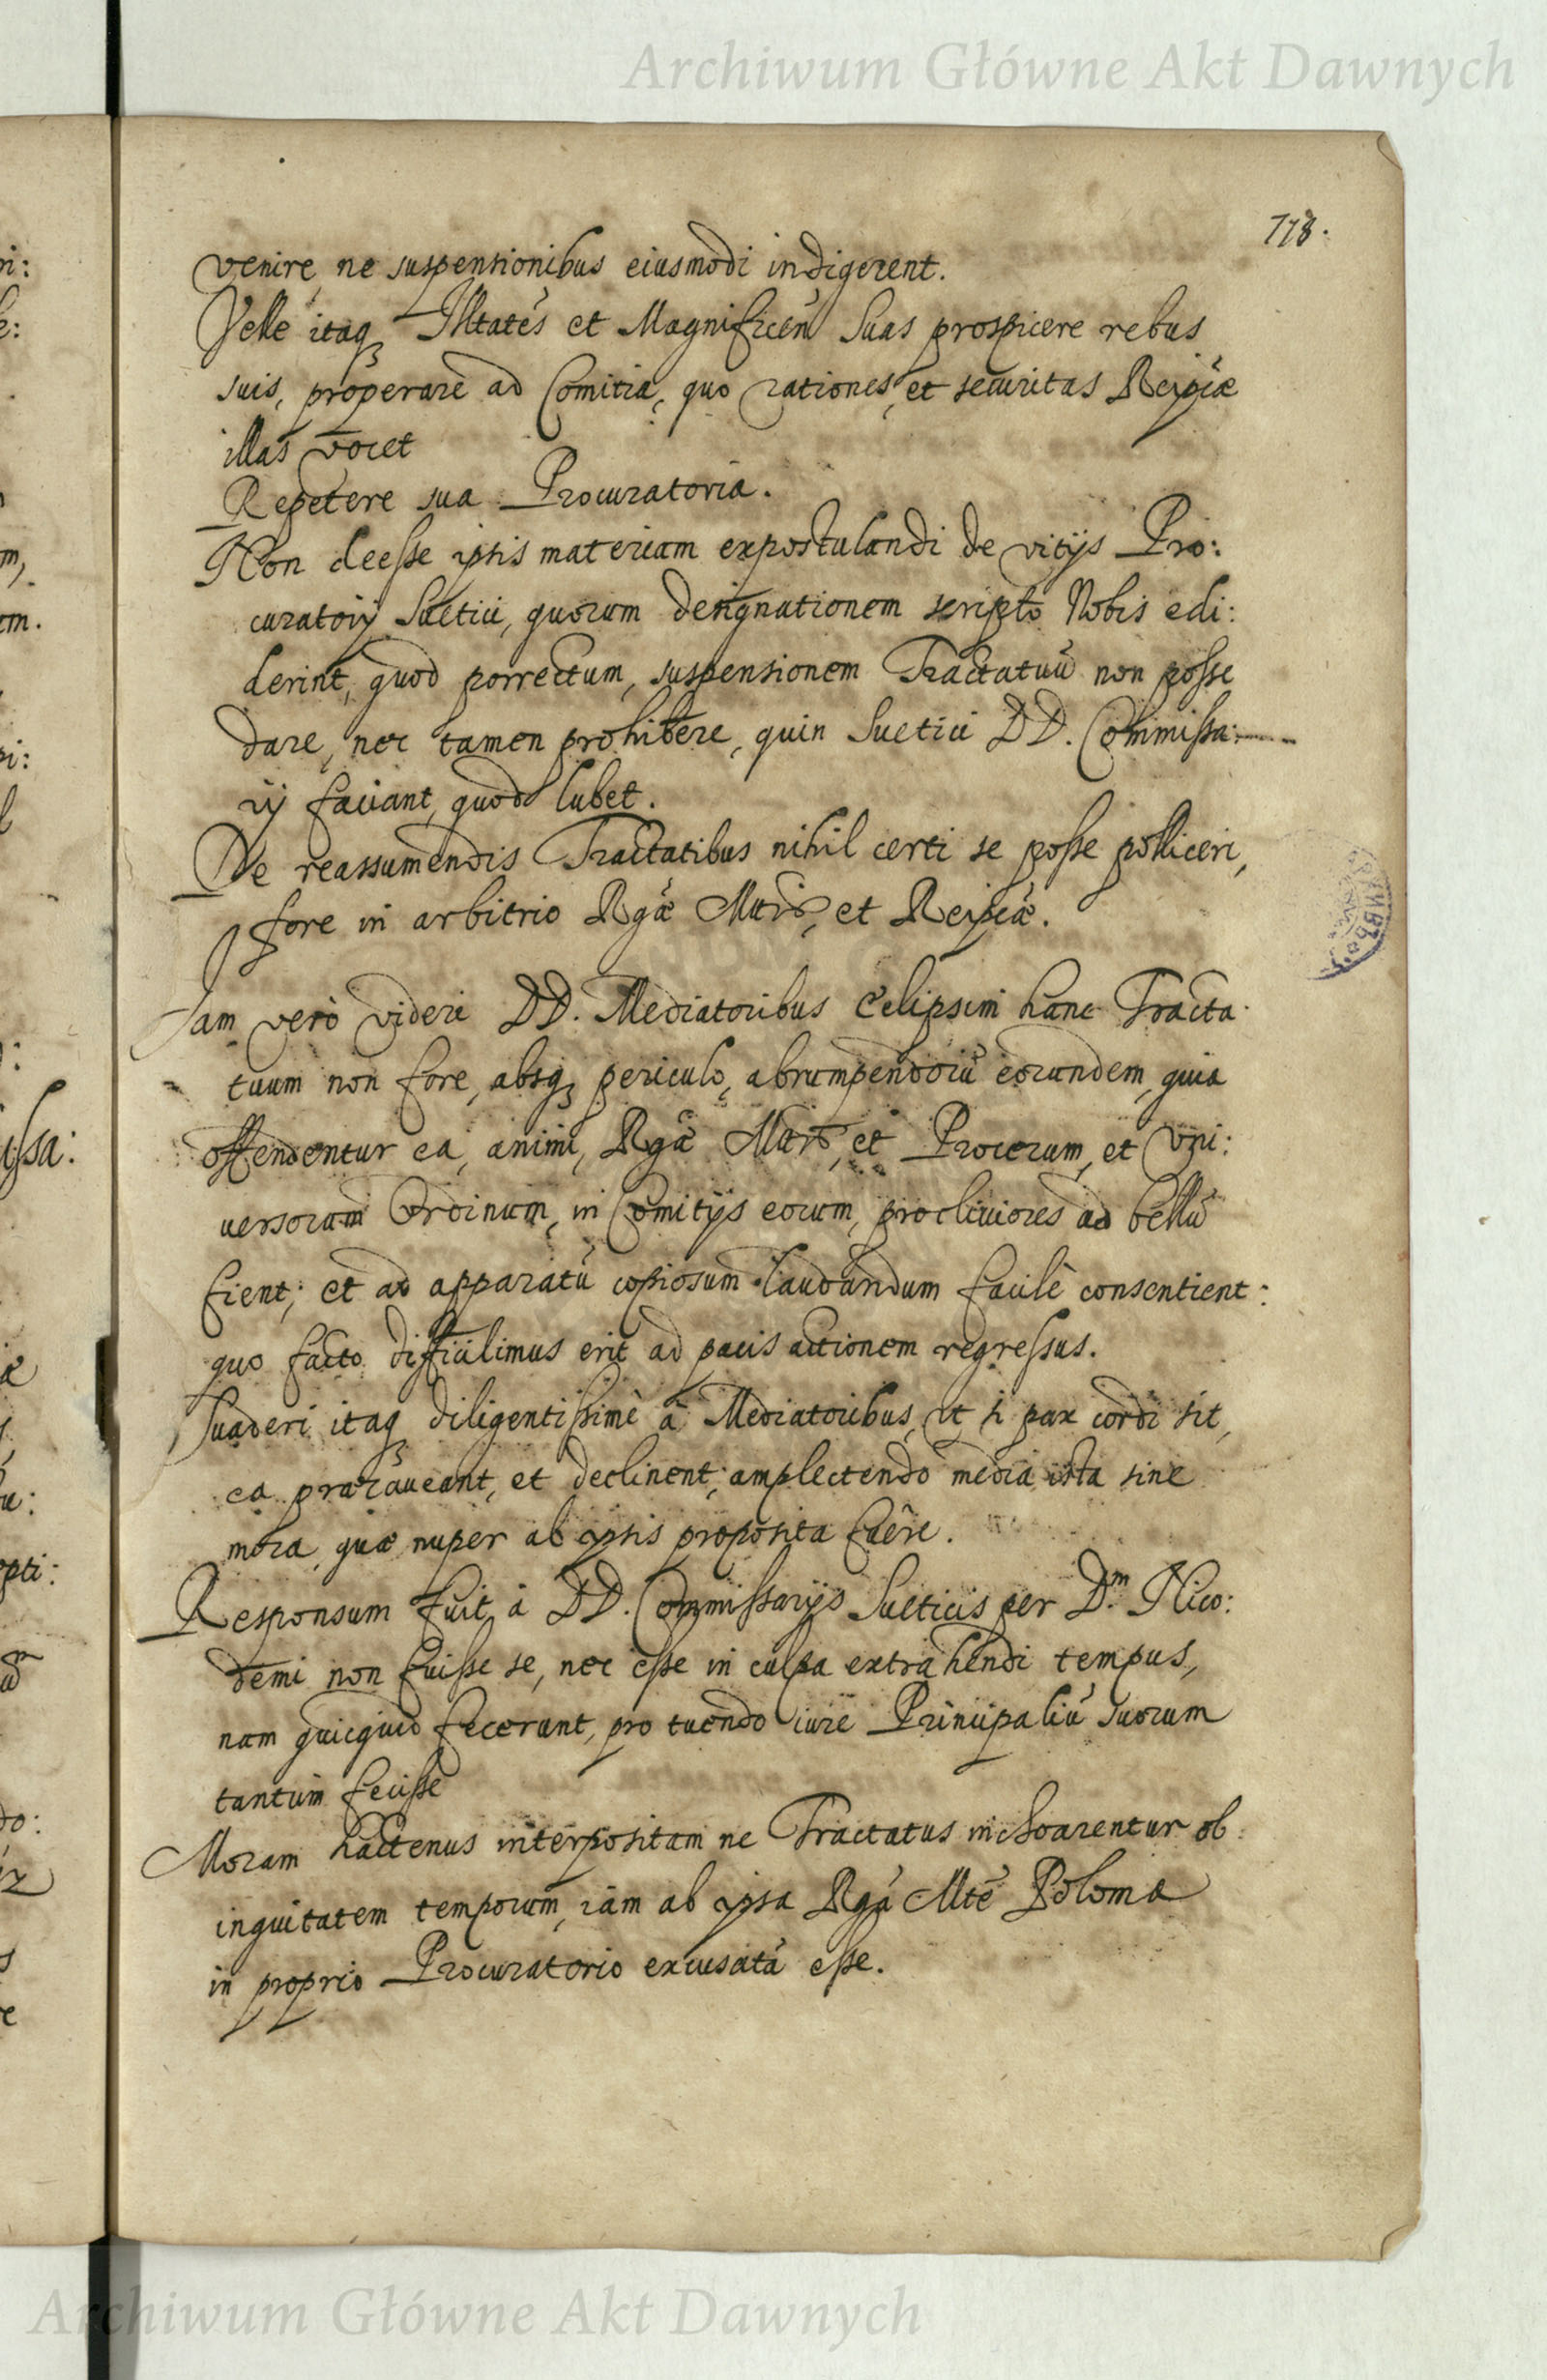 Archiwum Główne Akt Dawnych
118.
venire, ne suspensionibus eiusmodi indigerent.
Velle itaq Illtates et Magnificen Suas prospicere rebus
suis, properare ad Comitia, quo rationes, et securitas Reipcæ
illas vocet
Repetere sua Procuratoria.
Non deesse ipsis materiam expostulandi de vitijs Pro:
curatorij Suetici, quorum designationem scripto Nobis edi:
derint, quod porrectum, suspensionem Tractatuũ non posse
dare, nec tamen prohibere, quin Suetici DD. Commissa:
rij faciant, quod lubet.
De reassumendis Tractatibus nihil certi se posse polliceri,
fore in arbitrio Rgæ Mttis, et Reipcæ.
Jam verò videri DD. Mediatoribus Eclipsim hanc Tracta
tuum non fore, absq periculo, abrumpendorũ eorundem, quia
offendentur ea, animi, Rgæ Mttis, et Procerum, et Vni:
uersorum Ordinum, in Comitijs eorum, procliuiores ad bellũ
fient; et ad apparatũ copiosum laudandum facilè consentient:
quo facto difficilimus erit ad pacis actionem regressus.
Suaderi itaq diligentissimè à Mediatoribus, ut si pax cordi sit,
ea præcaueant, et declinent; amplectendo media ista sine
mora, quæ nuper ab ipsis proposita fuêre.
Responsum fuit à DD. Commissarijs Sueticis per D.m Nico:
demi non fuisse se, nec esse in culpa extrahendi tempus,
nam quicquid fecerunt, pro tuendo iure Principaliũ suorum
tantùm fecisse
Moram hactenus interpositam ne Tractatus inchoarentur ob
iniquitatem temporum, iam ab ipsa Rgâ Mtte Poloma
in proprio Procuratorio excusatã esse.
Archiwum Główne Akt Dawnych